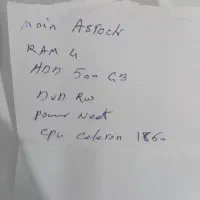 main Asrock
RAM 4
HDD 500 GB
DVD RW
power Next
CPU Celeron 186